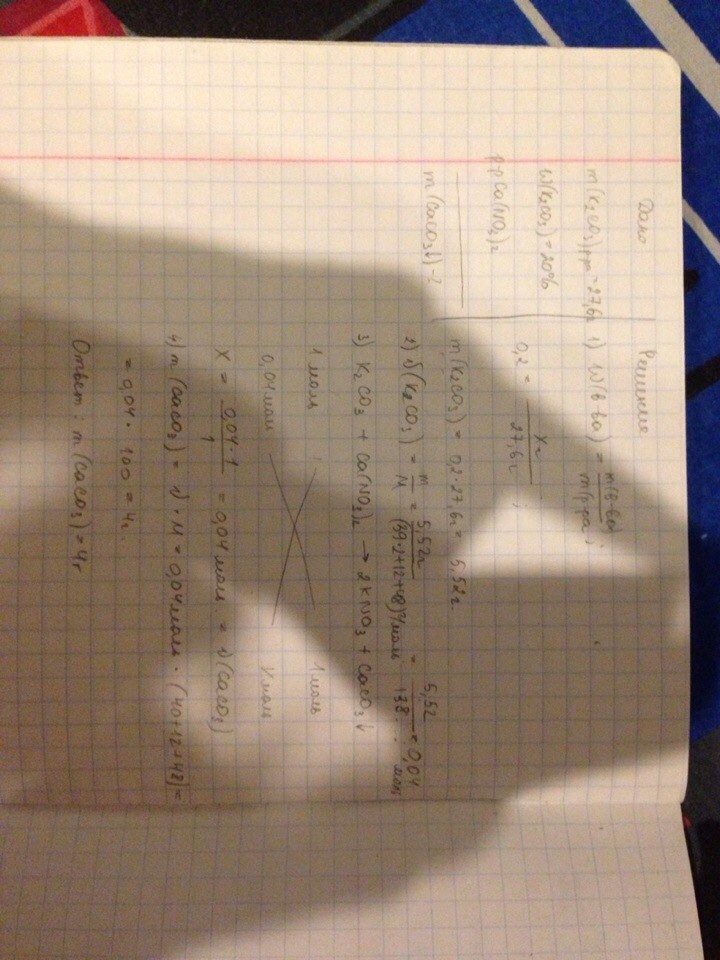 Дано
m(K₂CO₃)р-ра = 27,6г
W(K₂CO₃) = 20%
р-р Ca(NO₃)₂
m(CaCO₃↓) - ?
Решение
1) W(в-ва) = m(в-ва) / m(р-ра) ;
0,2 = Xг / 27,6г ;
m(K₂CO₃) = 0,2·27,6г = 5,52г
2) ν(K₂CO₃) = m / M = 5,52г / (39·2+12+48)г/моль = 5,52 / 138 = 0,04 моль
3) K₂CO₃ + Ca(NO₃)₂ → 2KNO₃ + CaCO₃↓
1 моль 1 моль
0,04 моль X моль
X = 0,04·1 / 1 = 0,04 моль = ν(CaCO₃)
4) m(CaCO₃) = ν·M = 0,04 моль · (40+12+48) =
= 0,04 · 100 = 4г
Ответ: m(CaCO₃) = 4г